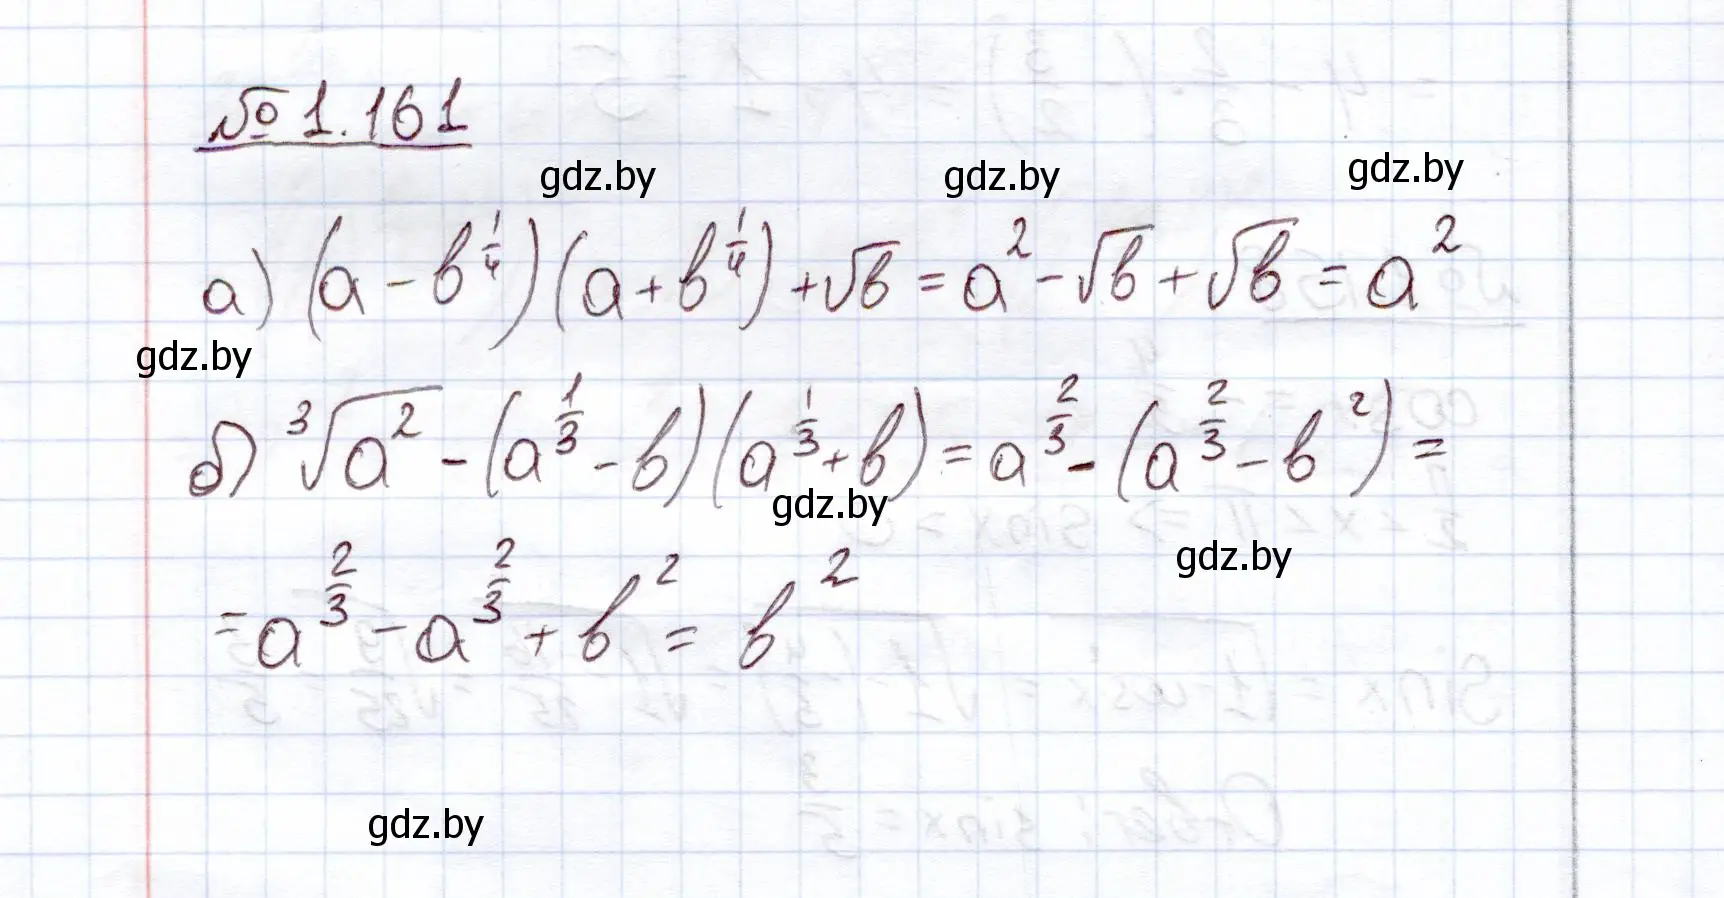 № 1.161
gdz.by gdz.by gdz.by
а) (a - b^{1/4})(a + b^{1/4}) + √b = a² - √b + √b = a²
gdz.by
б) ∛a² - (a^{1/3} - b)(a^{1/3} + b) = a^{2/3} - (a^{2/3} - b²) =
gdz.by
gdz.by
= a^{2/3} - a^{2/3} + b² = b²
gdz.by